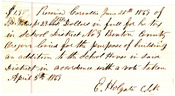 $25 Received Corvallis June 20th 1859 of
Dollars in full for his tax
in School District No 9 Benton County
Oregon levied for the purpose of building
an addition to the School House in said
District in accordance with a vote taken
April 5th 1859
E. Holgate Clk